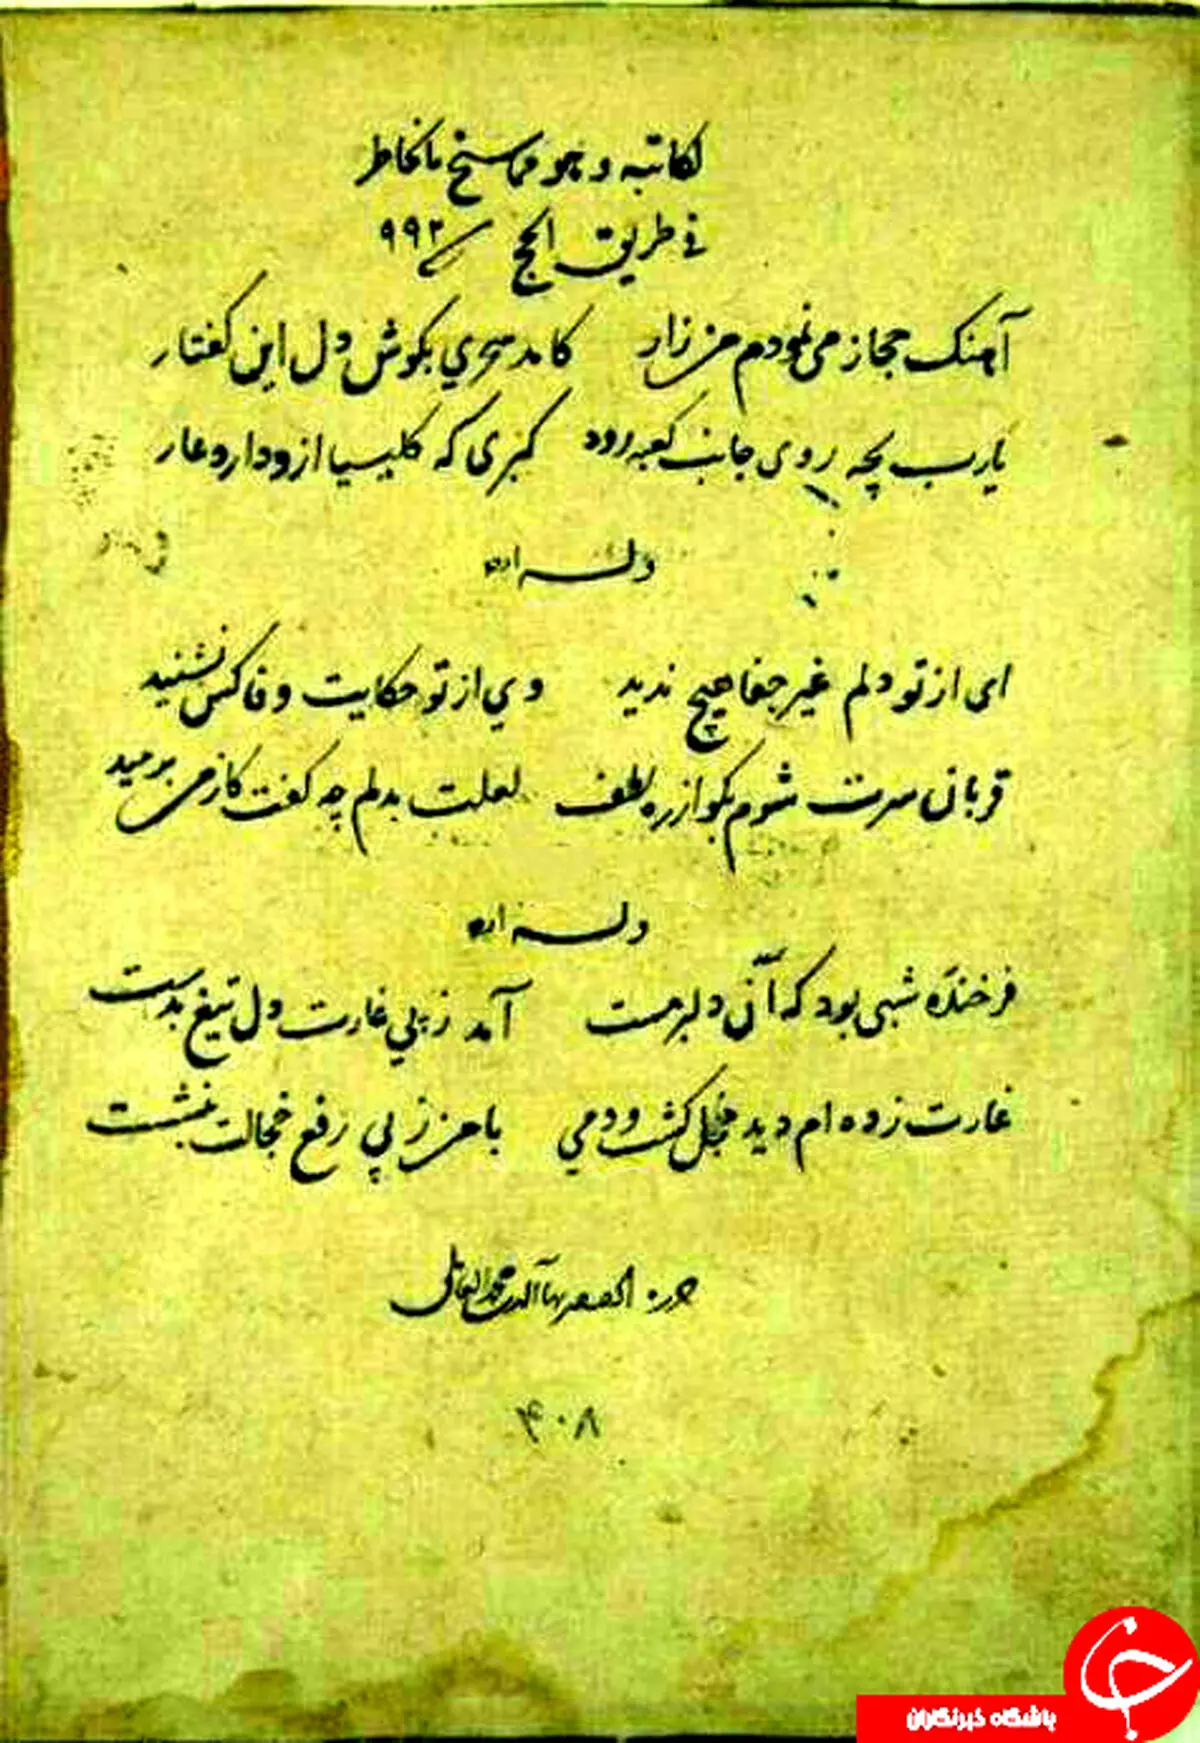 لکاتبه و هو مما سنح بالخاطر
فی طریق الحج سنه ۹۹۲
آهنک حجاز می نمودم من زار کامد سحری بکوش دل این کفتار
یارب بچه روی جانب کعبه رود کبری که کلیسیا ازو دارد عار
وله
ای از تو دلم غیر جفا هیچ ندید وی از تو حکایت وفا کس نشنید
قربان سرت شوم بکو از ره لطف لعلت بدلم چه کفت کز من برمید
وله
فرخنده شبی بود که آن دلبر مست آمد ز پی غارت دل تیغ بدست
غارت زده ام دید خجل کشت و دمی با من ز پی رفع خجالت بنشست
بهاء الدین محمد العاملی
۴۰۸
باشگاه خبرنگاران